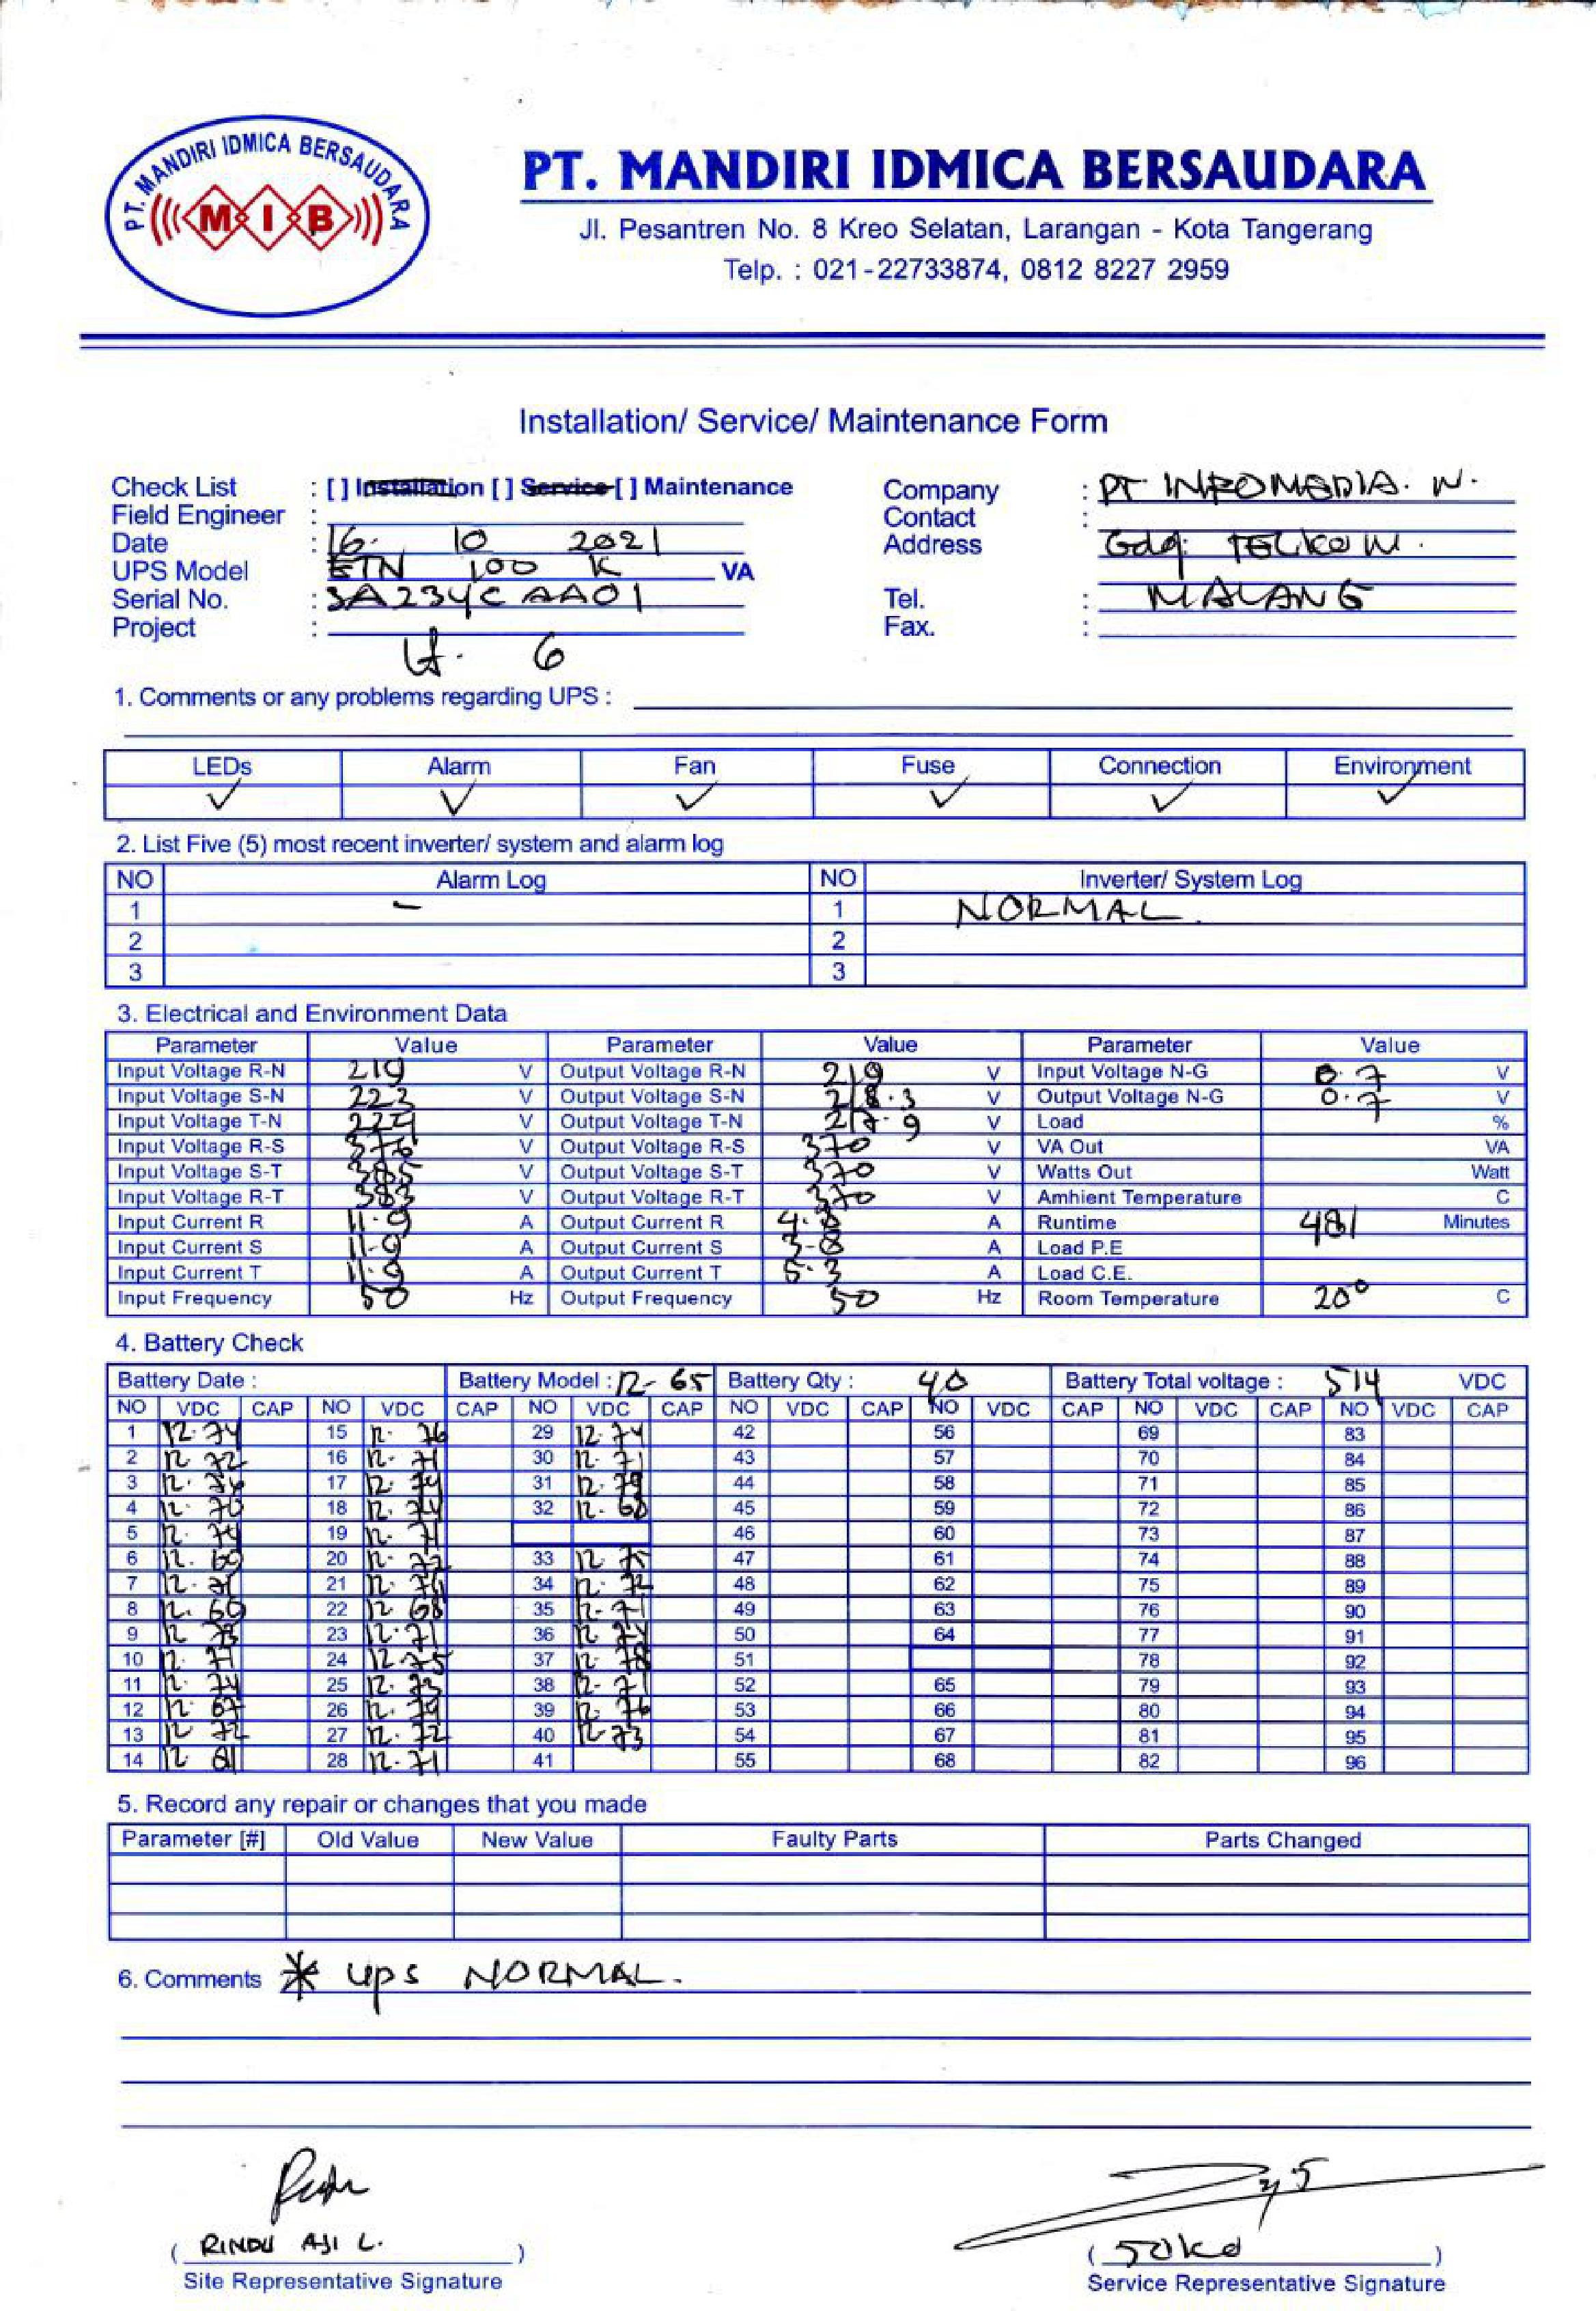 PT. MANDIRI IDMICA BERSAUDARA
MIB
PT. MANDIRI IDMICA BERSAUDARA
Jl. Pesantren No. 8 Kreo Selatan, Larangan - Kota Tangerang
Telp. : 021-22733874, 0812 8227 2959
Installation/ Service/ Maintenance Form
Check List : [ ] Installation [ ] Service [ ] Maintenance
Field Engineer :
Date : 16. 10 2021
UPS Model ETN 100 K VA
Serial No. : 3A234CAA01
Project :
Lt. 6
Company : PT INFOMEDIA. N.
Contact :
Address Gdg. TELKOM.
MALANG
Tel. :
Fax. :
1. Comments or any problems regarding UPS :
LEDs Alarm Fan Fuse Connection Environment
✓ ✓ ✓ ✓ ✓ ✓
2. List Five (5) most recent inverter/ system and alarm log
NO Alarm Log NO Inverter/ System Log
1 - 1 NORMAL.
2 2
3 3
3. Electrical and Environment Data
Parameter Value Parameter Value Parameter Value
Input Voltage R-N 219 V Output Voltage R-N 219 V Input Voltage N-G 0.7 V
Input Voltage S-N 223 V Output Voltage S-N 218.3 V Output Voltage N-G 0.7 V
Input Voltage T-N V Output Voltage T-N 217.9 V Load %
Input Voltage R-S 376 V Output Voltage R-S 370 V VA Out VA
Input Voltage S-T 385 V Output Voltage S-T 370 V Watts Out Watt
Input Voltage R-T 383 V Output Voltage R-T 370 V Amhient Temperature C
Input Current R 11.9 A Output Current R A Runtime 481 Minutes
Input Current S 11-9 A Output Current S 3-8 A Load P.E
Input Current T 11.9 A Output Current T 5.3 A Load C.E.
Input Frequency 50 Hz Output Frequency 50 Hz Room Temperature 20° C
4. Battery Check
Battery Date : Battery Model : 12- 65 Battery Qty : 40 Battery Total voltage : 514 VDC
NO VDC CAP NO VDC CAP NO VDC CAP NO VDC CAP NO VDC CAP NO VDC CAP NO VDC CAP
1 12.74 15 12. 76 29 12.74 42 56 69 83
2 12 72 16 12. 71 30 12. 71 43 57 70 84
3 17 12. 74 31 12. 79 44 58 71 85
4 12. 70 18 12. 74 32 12. 68 45 59 72 86
5 12. 74 19 12. 71 46 60 73 87
6 12. 69 20 12. 72 33 12 75 47 61 74 88
7 21 12. 76 34 12. 72 48 62 75 89
8 12. 69 22 12 68 35 12-71 49 63 76 90
9 12 73 23 12.71 36 12 74 50 64 77 91
10 12. 71 24 12.75 37 12. 78 51 78 92
11 12. 74 25 12. 73 38 12-71 52 65 79 93
12 12 67 26 12. 79 39 12. 76 53 66 80 94
13 12 72 27 12. 72 40 12-73 54 67 81 95
14 12 28 12.71 41 55 68 82 96
5. Record any repair or changes that you made
Parameter [#] Old Value New Value Faulty Parts Parts Changed
6. Comments * UPS NORMAL.
( RINDU AJI L. )
Site Representative Signature
( )
Service Representative Signature